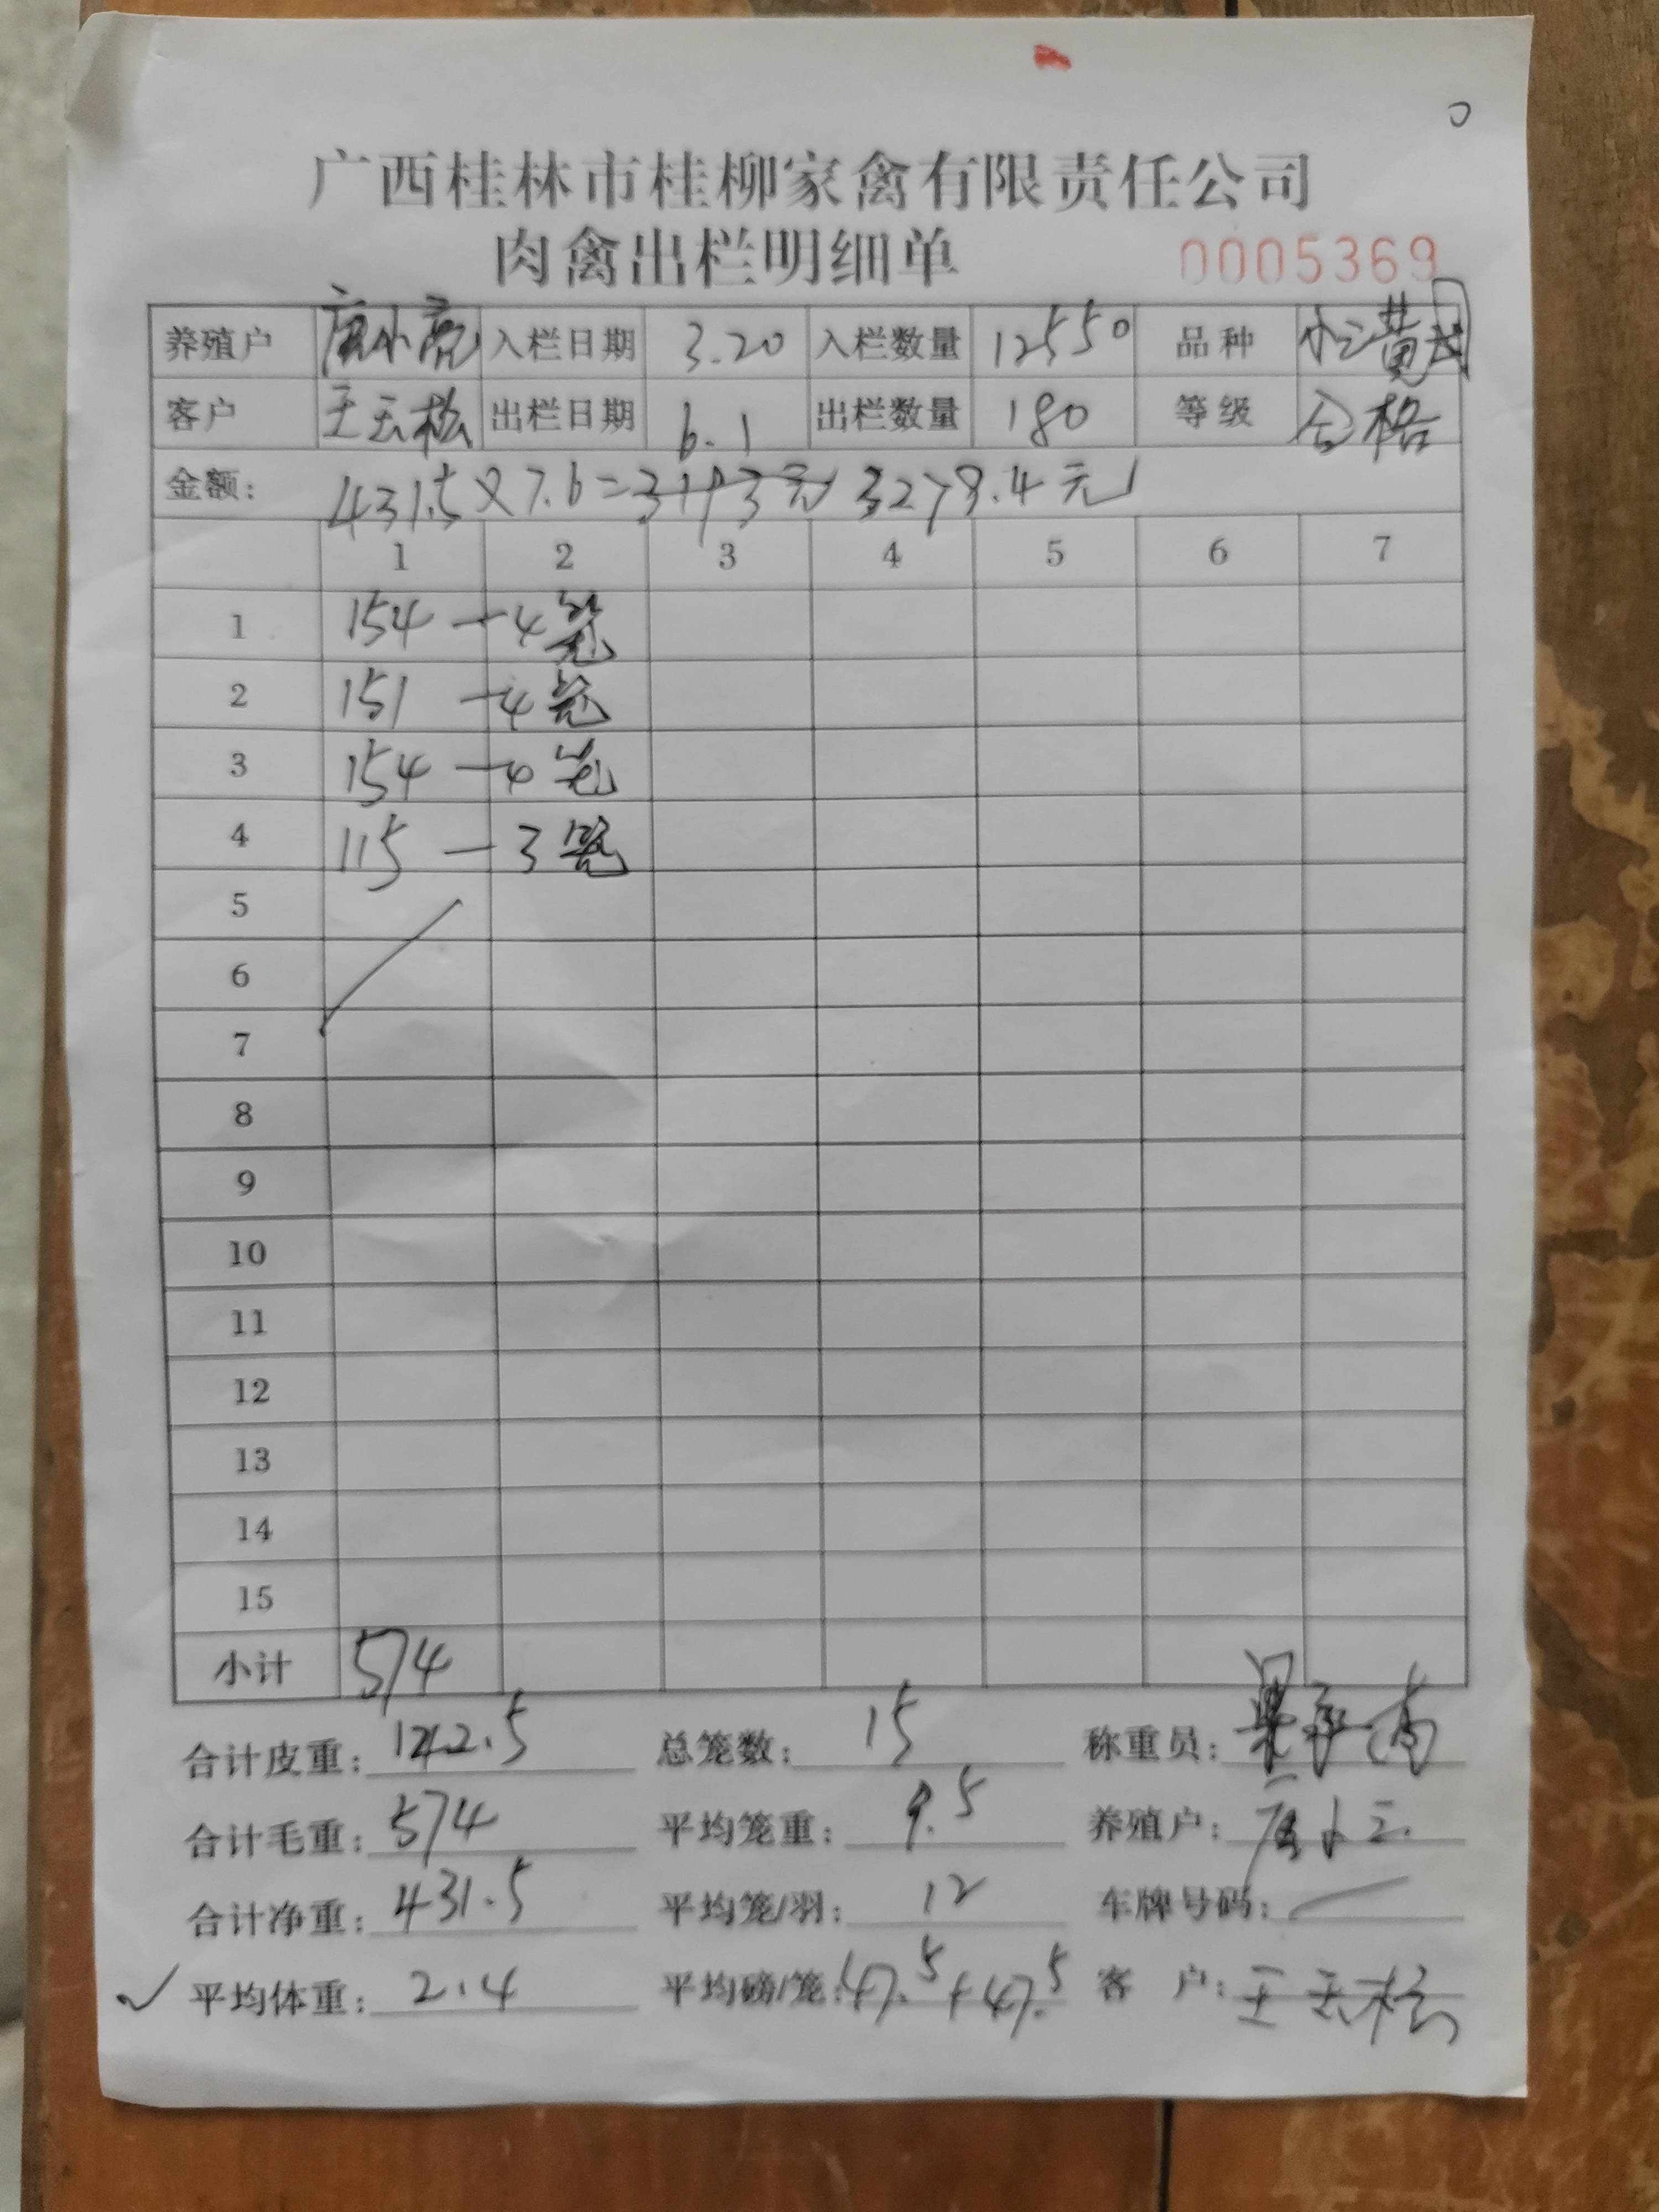 0
广西桂林市桂柳家禽有限责任公司
肉禽出栏明细单 0005369
养殖户 唐小亮 入栏日期 3.20 入栏数量 12550 品种 小三黄
客户 王玉松 出栏日期 6.1 出栏数量 180 等级 合格
金额: 431.5×7.6= 3279.4元
1 2 3 4 5 6 7
1 154 — 4笼
2 151 — 4笼
3 154 — 4笼
4 115 — 3笼
5
6
7
8
9
10
11
12
13
14
15
小计 574
合计皮重: 142.5 总笼数: 15 称重员:
合计毛重: 574 平均笼重: 9.5 养殖户:
合计净重: 431.5 平均笼/羽: 12 车牌号码:
✓ 平均体重: 2.4 平均磅/笼: 47.5+47.5 客 户: 王玉松